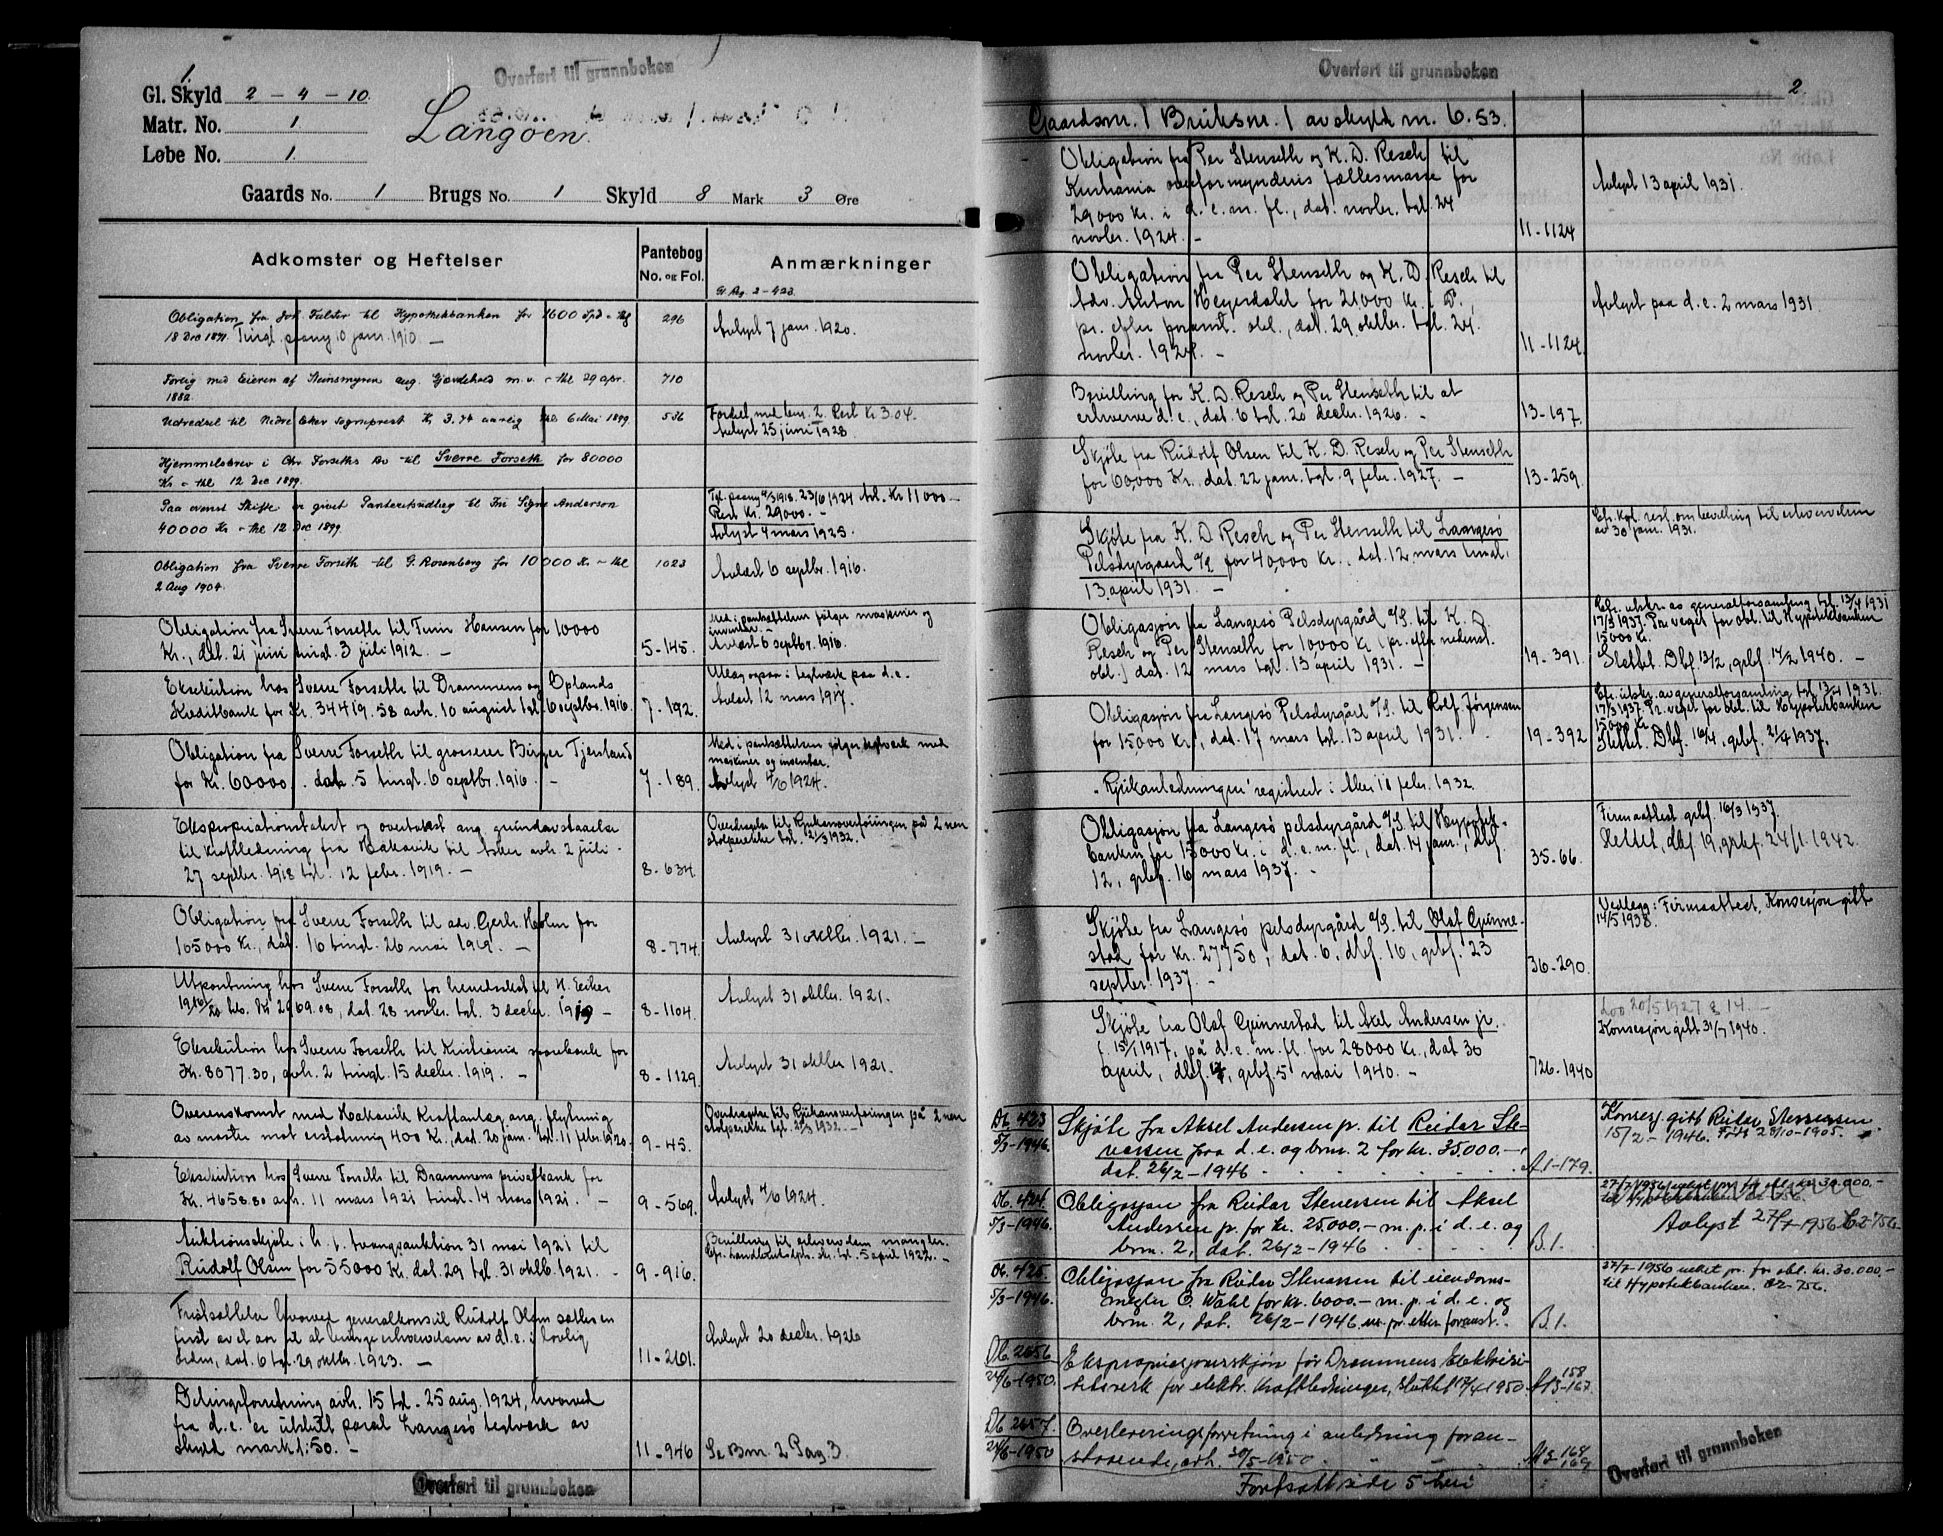 1.
Overført til grunnboken
Gl. Skyld 2 - 4 - 10
Matr. No. 1
Løbe No. 1.
Langøen.
Gaards No. 1 Brugs No. 1 Skyld 8 Mark 3 Øre
Adkomster og Heftelser
Pantebog
No. og Fol.
Anmærkninger
Gl. Rg. 2-423.
Obligation fra Joh. Falster til Hypothekbanken for 1600 Spd - thl
18 Dec 1871. Tingl. paany 10 janr. 1910. —
296
Avlyst 7 janr. 1920.
Forlig med Eieren af Steinsmyren ang. Gjærdehold m.v. - thl 29 apr.
1882.
710
Udredsel til Nedre Eker Sogneprest Kr 3.74 aarlig thl 6 Mai 1899.
536
2. Rest Kr 3.04.
Avlyst 25 juni 1928.
Hjemmelsbrev i Chr Forseths Bo til Sverre Forseth for 80000
Kr - thl 12 Dec 1899.
Paa ovenst Skifte er givet Panteretsudlæg til Fru Signe Anderson
40000 Kr - thl 12 Dec 1899.
Tgl. paany 4/3 1918. 23/6 1924 bet. Kr 11000 -
Rest Kr. 29000. -
Avlyst 4 mars 1925.
Obligation fra Sverre Forseth til G. Rosenberg for 10000 Kr - thl
2 Aug 1904.
1023
Avlæst 6 septbr. 1916.
Obligation fra Sverre Forseth til Thin Hansen for 10000
Kr., dat. 21 juni tingl. 3 juli 1912. —
5-145.
Med i pantsættelsen følger maskiner og
inventar. -
Avlæst 6 septbr. 1916.
Eksekution hos Sverre Forseth til Drammens og Oplands
Kreditbank for Kr. 34419.58 avh. 10 august tgl. 6 septbr. 1916.
7-192.
Utlæg ogsaa i teglverk paa d.e. -
Avlæst 12 mars 1917.
Obligation fra Sverre Forseth til grosserer Birger Tjersland
for Kr. 60000. dat. 5 tingl. 6 septbr. 1916. —
7-189.
Med i pantsættelsen følger teglverk med
maskiner og inventar.
Avlyst 4/6 1924.
Ekspropriationstakst og overtakst ang. grundavstaaelse
til kraftledning fra Hakavik til Asker avh. 2 juli -
27 septbr. 1918 tgl. 12 febr. 1919. —
8-634.
Overdragelse til Rjukanoverføringen på 2 nen
stolperekke tgl. 21/3 1932.
Obligation fra Sverre Forseth til adv. Gerh. Holm for
105000 Kr., dat. 16 tingl. 26 mai 1919. —
8-774.
Avlyst 31 oktbr. 1921. —
Utpantning hos Sverre Forseth for herredsskat til N. Eeker
1919/20 bet. Kr 2969.08, dat. 28 novbr. tgl. 3 decbr. 1919 —
8-1104.
Avlyst 31 oktbr. 1921.
Eksekution hos Sverre Forseth til Kristiania sparebank for
Kr. 8077.30, avh. 2 tingl. 15 decbr. 1919. —
8-1129.
Avlyst 31 oktbr 1921.
Overenskomst med Hakavik Kraftanlæg ang. flytning
av master mot erstatning 400 Kr., dat. 20 jan. tgl. 11 febr. 1920.
9-45.
Overdragelse til Rjukanoverføringen på 2 nen
stolperekke tgl. 21/3 1932. —
Eksekution hos Sverre Forseth til Drammens privatbank for
Kr. 4658.80 avh. 11 mars 1921 tingl. 14 mars 1921. —
9-569.
Avlyst 4/6 1924.
Auktionsskjøte i h. t. tvangsauktion 31 mai 1921 til
Rudolf Olsen for 55000 Kr. dat. 29 tgl. 31 oktb. 1921. -
9-916.
Bevilling til erhvervelsen mangler.
5 april 1922. —
Fristsættelse hvorved generalkonsul Rudolf Olsen sættes en
frist av et aar til at bringe erhvervelsen av d.e. i lovlig
orden, dat. 6 tgl. 29 oktbr. 1923. —
11-261.
Avlyst 20 decbr. 1926
Delingsforretning avh. 15 tgl. 25 aug. 1924, hvorved
fra d.e. er utskilt parsel Langesø teglverk av
skyld mark 1.50. —
11-946
Se Bnr. 2 Pag. 3.
Overført til grunnboken
Overført til grunnboken
2.
Gaardsnr. 1 Bruksnr. 1 av skyld m. 6.53.
Obligation fra Per Stenseth og K. D. Resch til
Kristiania overformynderis fællesmasse for
29000 Kr. i d. e. m. fl., dat. novbr. tgl. 24
novbr. 1924. —
11-1124
Avlyst 13 april 1931.
Obligation fra Per Stenseth og K. D. Resch til
Adv. Anton Heyerdahl for 21000 Kr. i
pr. efter foranst. obl., dat. 29 oktbr. tgl. 24.
novbr. 1924. —
11-1124.
Avlyst paa d.e. 2 mars 1931.
Bevilling for K. D. Resch og Per Stenseth til at
erhverve d.e., dat. 6 tgl. 20 decbr. 1926. -
13-197.
Skjøte fra Rudolf Olsen til K. D. Resch og Per Stenseth
for 60,000 Kr., dat. 22 janr. tgl. 9 febr. 1927. —
13-259.
Skjøte fra K. D. Resch og Per Stenseth til Langesø
Pelsdyrgaard A/S for 40,000 Kr., dat. 12. mars tingl.
13. april 1931. —
Cfr. Kgl. resl. om bevilling til erhvervelsen
av 30 janr. 1931.
Obligasjon fra Langesø Pelsdyrgård A/S. til K. D.
Resch og Per Stenseth for 10,000 Kr. (pr. efter nedenst.
obl.) dat. 12 mars tgl. 13 april 1931. —
19-391.
Cfr. utskr. av generalforsamling tgl. 13/4 1931
17/3 1937. Pr. veget for obl. til Hypotekbanken
15000 Kr.
Slettet. Dbf. 13/2, grbf. 17/2 1940. —
Obligasjon fra Langesø Pelsdyrgård A/S. til Rolf Jørgensen
for 15,000 Kr., dat. 17 mars tgl. 13 april 1931. -
19-392
Cfr. utskr. av generalforsamling tgl. 13/4 1931.
17/3 1937. Pr. veget for obl. til Hypotekbanken
15000 Kr.
Slettet. Dbf. 16/4, grbf. 21/4 1937.
"Rjukanledningen" registrert i Asker 18 febr. 1932.
Obligasjon fra Langesø pelsdyrgård A/S. til Hypotek-
banken for 15000 Kr. i d.e.m.fl., dat. 14 janr., dbf.
12, grbf. 16 mars 1937. -
35-66.
Firmaattest grbf. 16/3 1937.
Slettet, dbf 19, grbf. 24/1. 1942.
Skjøte fra Langesø pelsdyrgård A/S. til Olaf Gunne-
stad for kr. 27750, dat. 6, dbf. 16, grbf. 23
septbr. 1937. -
36-290.
Vedlegg: Firmaattest, Konsesjon gitt
14/5 1938.
Skjøte fra Olaf Gunnestad til Aksel Andersen jr.
f. 15/1 1917, på d.e.m.fl. for 28000 Kr., dat 30
april, dbf. 4, grbf. 5 mai 1940. -
726-1940
Lov 20/5 1927 § 14. —
Konsesjon gitt 31/7 1940.
Db. 423
5/3-1946.
Skjøte fra Aksel Andersen jr. til Reidar Ste-
nersen paa d.e. og brnr. 2 for kr. 35.000.-,
dat. 26/2-1946
A1-179.
Konsesj. gitt Reidar Stenersen
15/2-1946. Født 28/10-1905.
Db. 424.
5/3-1946.
Obligasjon fra Reidar Stenersen til Aksel
Andersen jr. for kr. 25.000,- m.p. i d.e. og
brnr. 2, dat. 26/2-1946
B.1.
27/7 1956 veket pr. for obl. kr. 30.000,-
til Hypotekbanken
Avlyst 27/7-1956
Db. 425.
5/3-1946.
Obligasjon fra Reidar Stenersen til eiendoms-
megler O. Wahl for kr. 6000.- m.p. i d.e. og
brnr. 2, dat. 26/2-1946 m. pr. etter foranst.
B.1.
27/7-1956 veket pr. for obl. kr. 30.000,-
til Hypotekbanken. B2-756.
Db. 2656
24/6-1950.
Ekspropriasjonsskjøn for Drammens Elektrisi-
tetsverk for elektr. Kraftledninger, sluttet 17/4 1950
A3-158
167.
Db. 2657.
24/6-1950
Overleveringsforretning i anledning foran-
stående, avh. 30/5-1950.
A3-168
169
Fortsatt side 5 heri
Overført til grunnboken